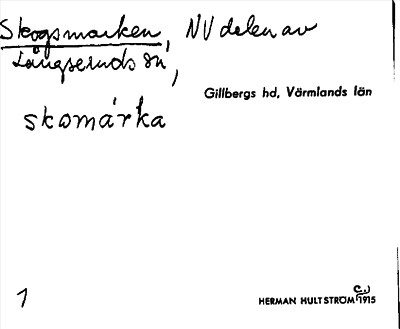 Skogsmarken, NV delen av
Långseruds sn,
Gillbergs hd, Värmlands län
skomárka
1
HERMAN HULTSTRÖM 1915